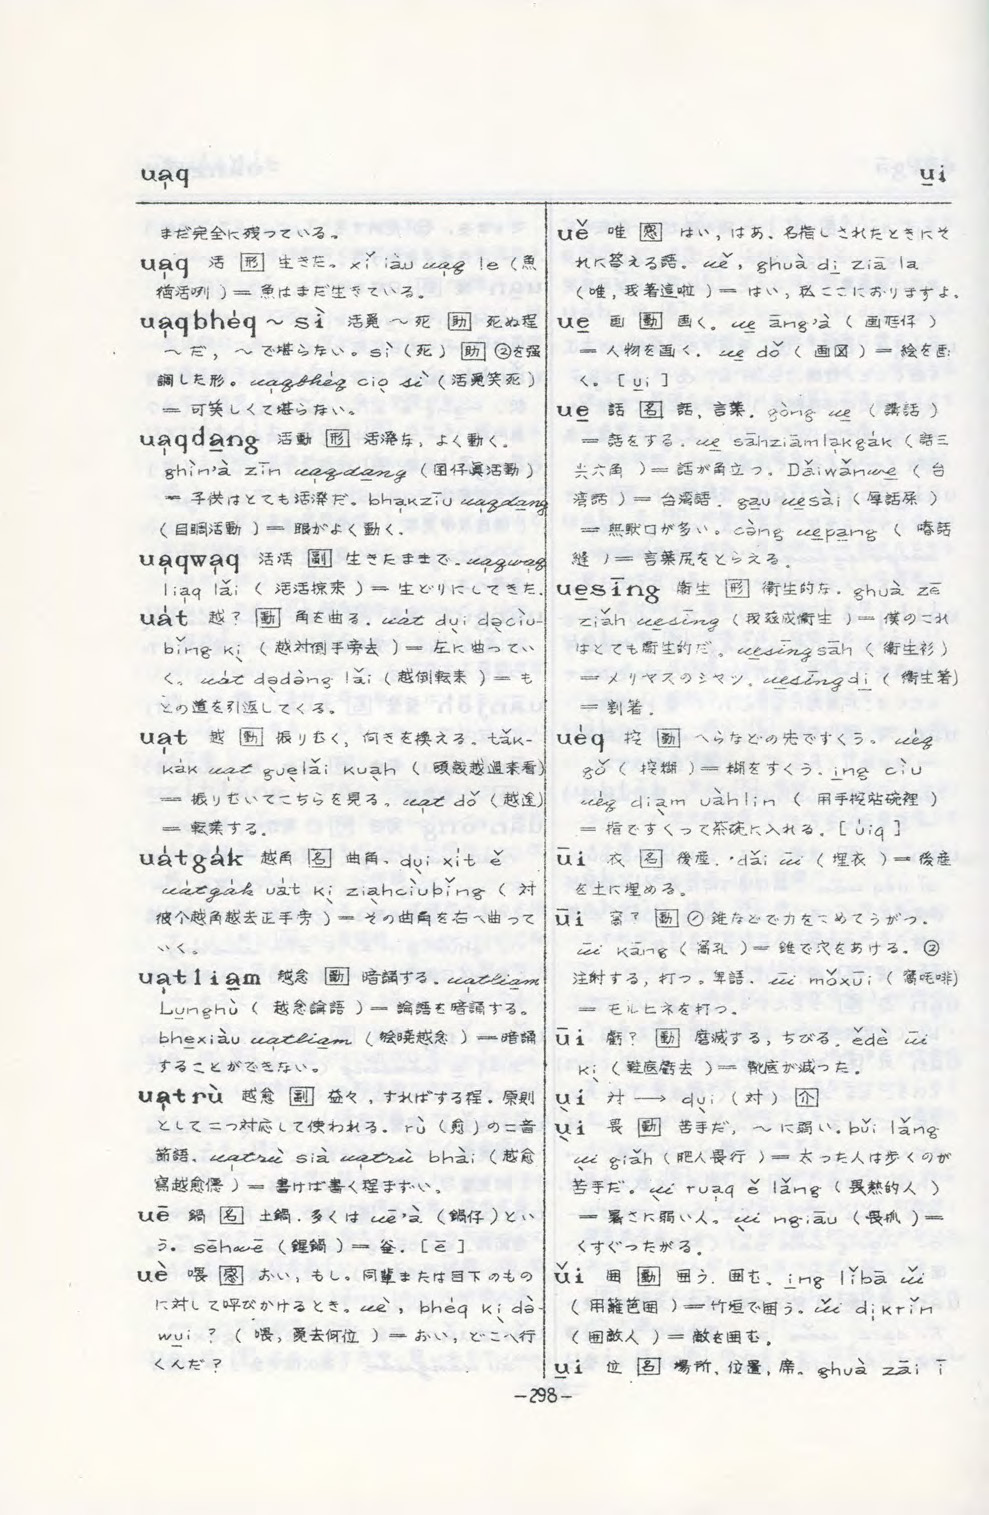 ua̍q
u̱i
まだ完全に残っている。
ua̍q 活 形 生きた。xǐ iàu ua̍q le (魚
猶活咧) = 魚はまだ生きている。
ua̍qbhéq ~ sì 活覓~死 助 死ぬ程
~だ, ~で堪らない。sì (死) 助 ②を强
調した形。 cio̱ sì (活覓笑死)
= 可笑しくて堪らない。
ua̍qda̱ng 活動 形 活潑な, よく動く。
ghìn'à zīn ua̍qda̱ng (囝仔眞活動)
= 子供はとても活潑だ。bha̍kziū ua̍qda̱ng
(目睭活動) = 眼がよく動く.
ua̍qwa̍q 活活 副 生きたままで. ua̍qwa̍q
lia̍q lǎi (活活掠来) = 生どりにしてきた.
uát 越? 動 角を曲る. uát
(越対倒手旁去) = 左に曲ってい
く。 (越倒転来) = も
との道を引返してくる。
ua̍t 越 動 振りむく, 向きを換える. tǎk-
kák ua̍t (頭殻越過来看)
= 振りむいてこちらを見る。ua̍t dǒ (越途)
= 転業する.
uátgák 越角 名 曲角. xít ě
uátgák uát (対
彼个越角越去正手旁) = その曲角を右へ曲って
いく。
ua̍tlia̱m 越念 動 暗誦する. ua̍tlia̱m
Lu̱nghù (越念論語) = 論語を暗誦する。
bhe̱xiàu ua̍tlia̱m (𣍐暁越念) = 暗誦
することができない。
ua̍trù 越愈 副 益々, すればする程. 原則
として二つ対応して使われる. rù (愈) の二音
節語. ua̍trù sià ua̍trù bhài (越愈
寫越愈僫) = 書けば書く程まずい。
uē 鍋 名 土鍋. 多くは uē'à (鍋仔) とい
う。 (鋞鍋) = 釜. [ē]
uè 喂 感 おい, もし。同輩または目下のもの
に対して呼びかけるとき。uè, bhéq
wui ? (喂, 覓去何位) = おい, どこへ行
くんだ?
uě 唯 感 はい, はあ. 名指しされたときにそ
れに答える語。uě, ghuà di̱ ziā la
(唯, 我著這啦) = はい, 私ここにおりますよ。
u̱e 画 動 画く。u̱e āng'à (画尫仔)
= 人物を画く. u̱e dǒ (画図) = 絵を画
く。[u̱i]
u̱e 話 名 話, 言葉. gòng u̱e (講話)
= 話をする. u̱e sānziāmla̍kgák (話三
尖六角) = 話が角立つ. Dǎiwǎnwe (台
湾話) = 台湾語. ga̱u u̱esài (厚話屎)
= 無駄口が多い。 u̱epa̱ng (話
縫) = 言葉尻をとらえる.
u̱esīng 衛生 形 衛生的な. ghuà zē
ziǎh u̱esīng (我玆成衛生) = 僕のこれ
はとても衛生的だ。u̱esīngsāh (衛生衫)
= メリヤスのシャツ. u̱esīngdi̱ (衛生箸)
= 割箸.
uéq 挖 動 へらなどの先ですくう。uéq
gǒ (挖糊) = 糊をすくう. ing ciù
uéq diàm uàhlin (用手挖站碗裡)
= 指ですくって茶碗に入れる. [úiq]
ūi 衣 名 後産. dǎi ūi (埋衣) = 後産
を土に埋める。
ūi 動 ①錐などで力をこめてうがつ.
ūi kāng = 錐で穴をあける。②
注射する, 打つ。卑語. ūi mǒxūi
= モルヒネを打つ.
ūi 虧? 動 磨滅する, ちびる. ědè ūi
(鞋底虧去) = 靴底が減った.
対 → (対) 介
畏 動 苦手だ, ~に弱い. būi lǎng
giǎh (肥人畏行) = 太った人は歩くのが
苦手だ。 ruaq ě lǎng (畏熱的人)
= 暑さに弱い人。 ngiāu (畏抓) =
くすぐったがる.
ǔi 囲 動 囲う. 囲む. i̱ng lǐbā ǔi
(用籬笆囲) = 竹垣で囲う。ǔi di̱krǐn
(囲敵人) = 敵を囲む.
u̱i 位 名 場所, 位置, 席. ghuà zāi ī
-298-